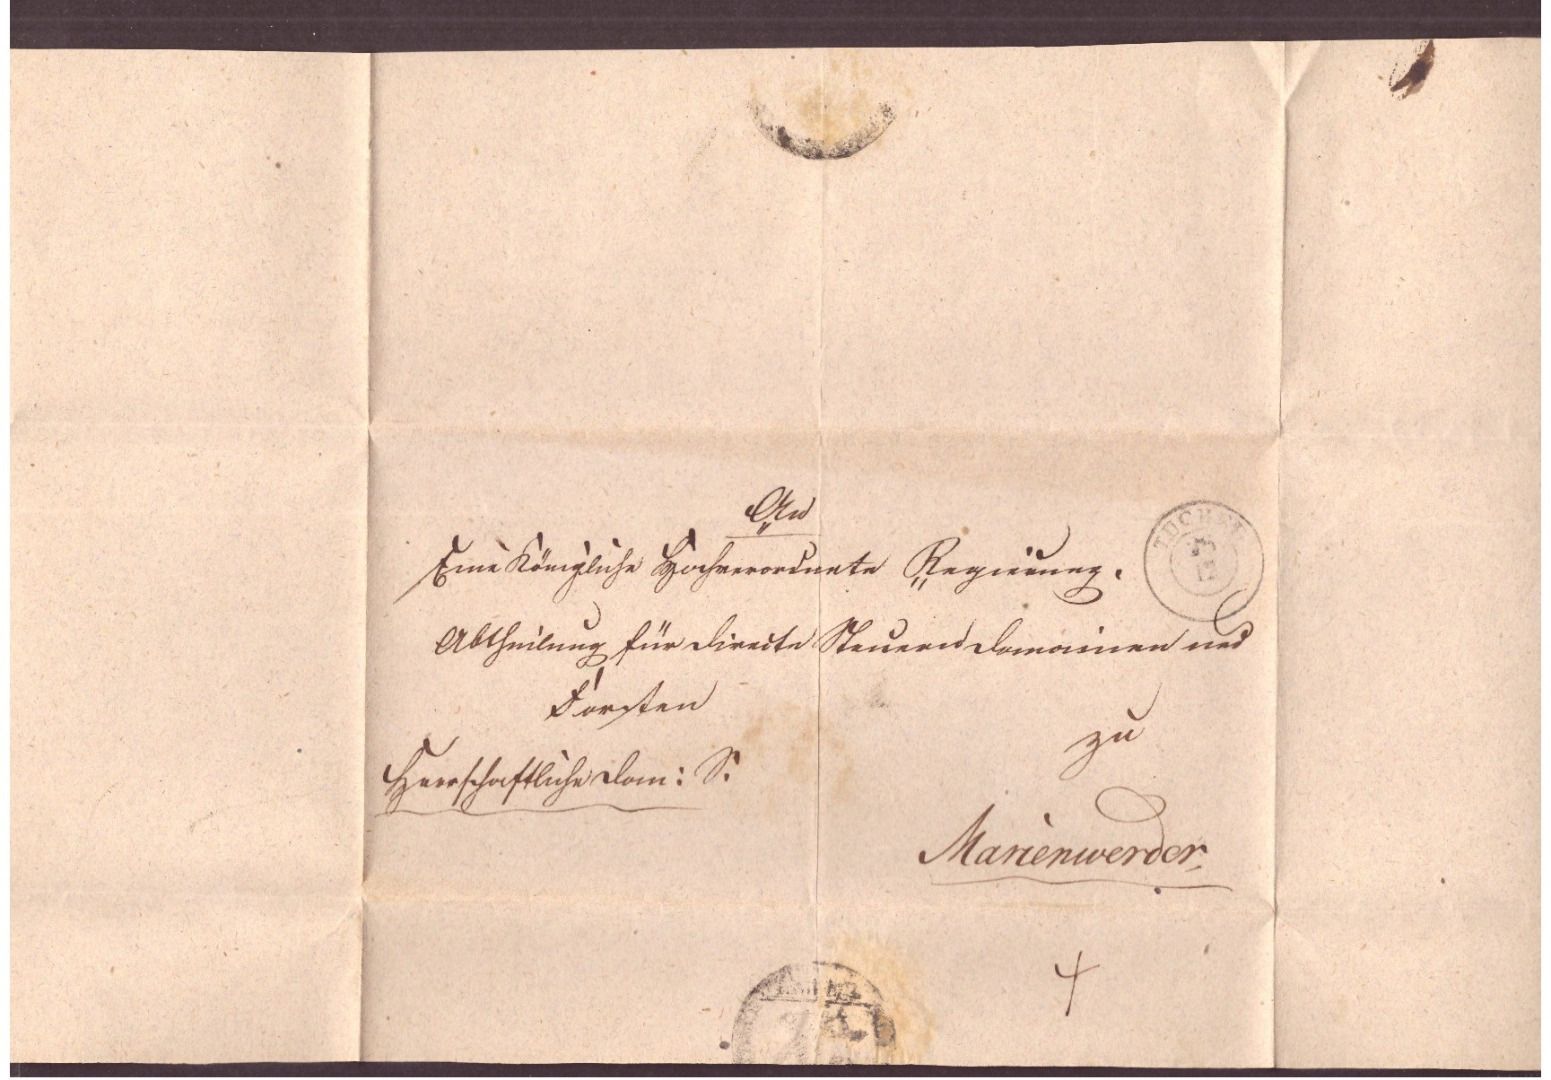 An
Eine Königliche Hochverordnete Regierung.
TUCHEL
Abtheilung für directe Steuern Domainen und
Forsten
zu
Herrschaftliche Dom: S.
Marienwerder
4